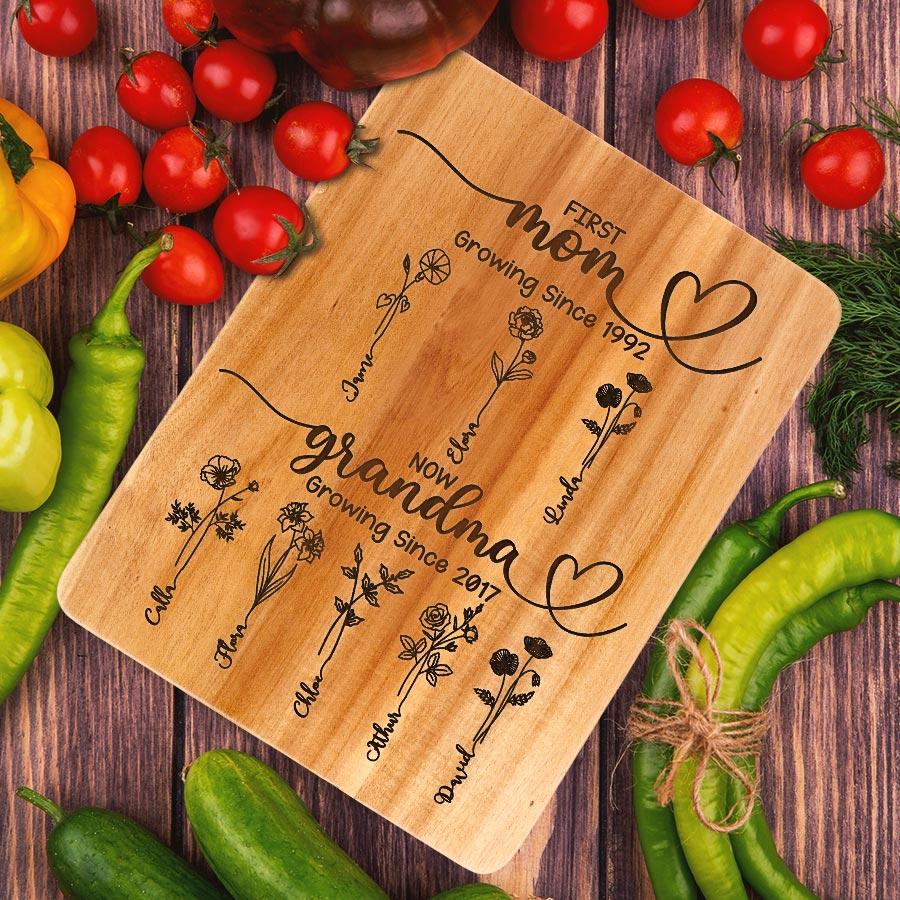 FIRST
mom
Growing Since 1992
Jame
Elora
Linda
NOW
grandma
Growing Since 2017
Calla
Flora
Chloe
Arthur
David